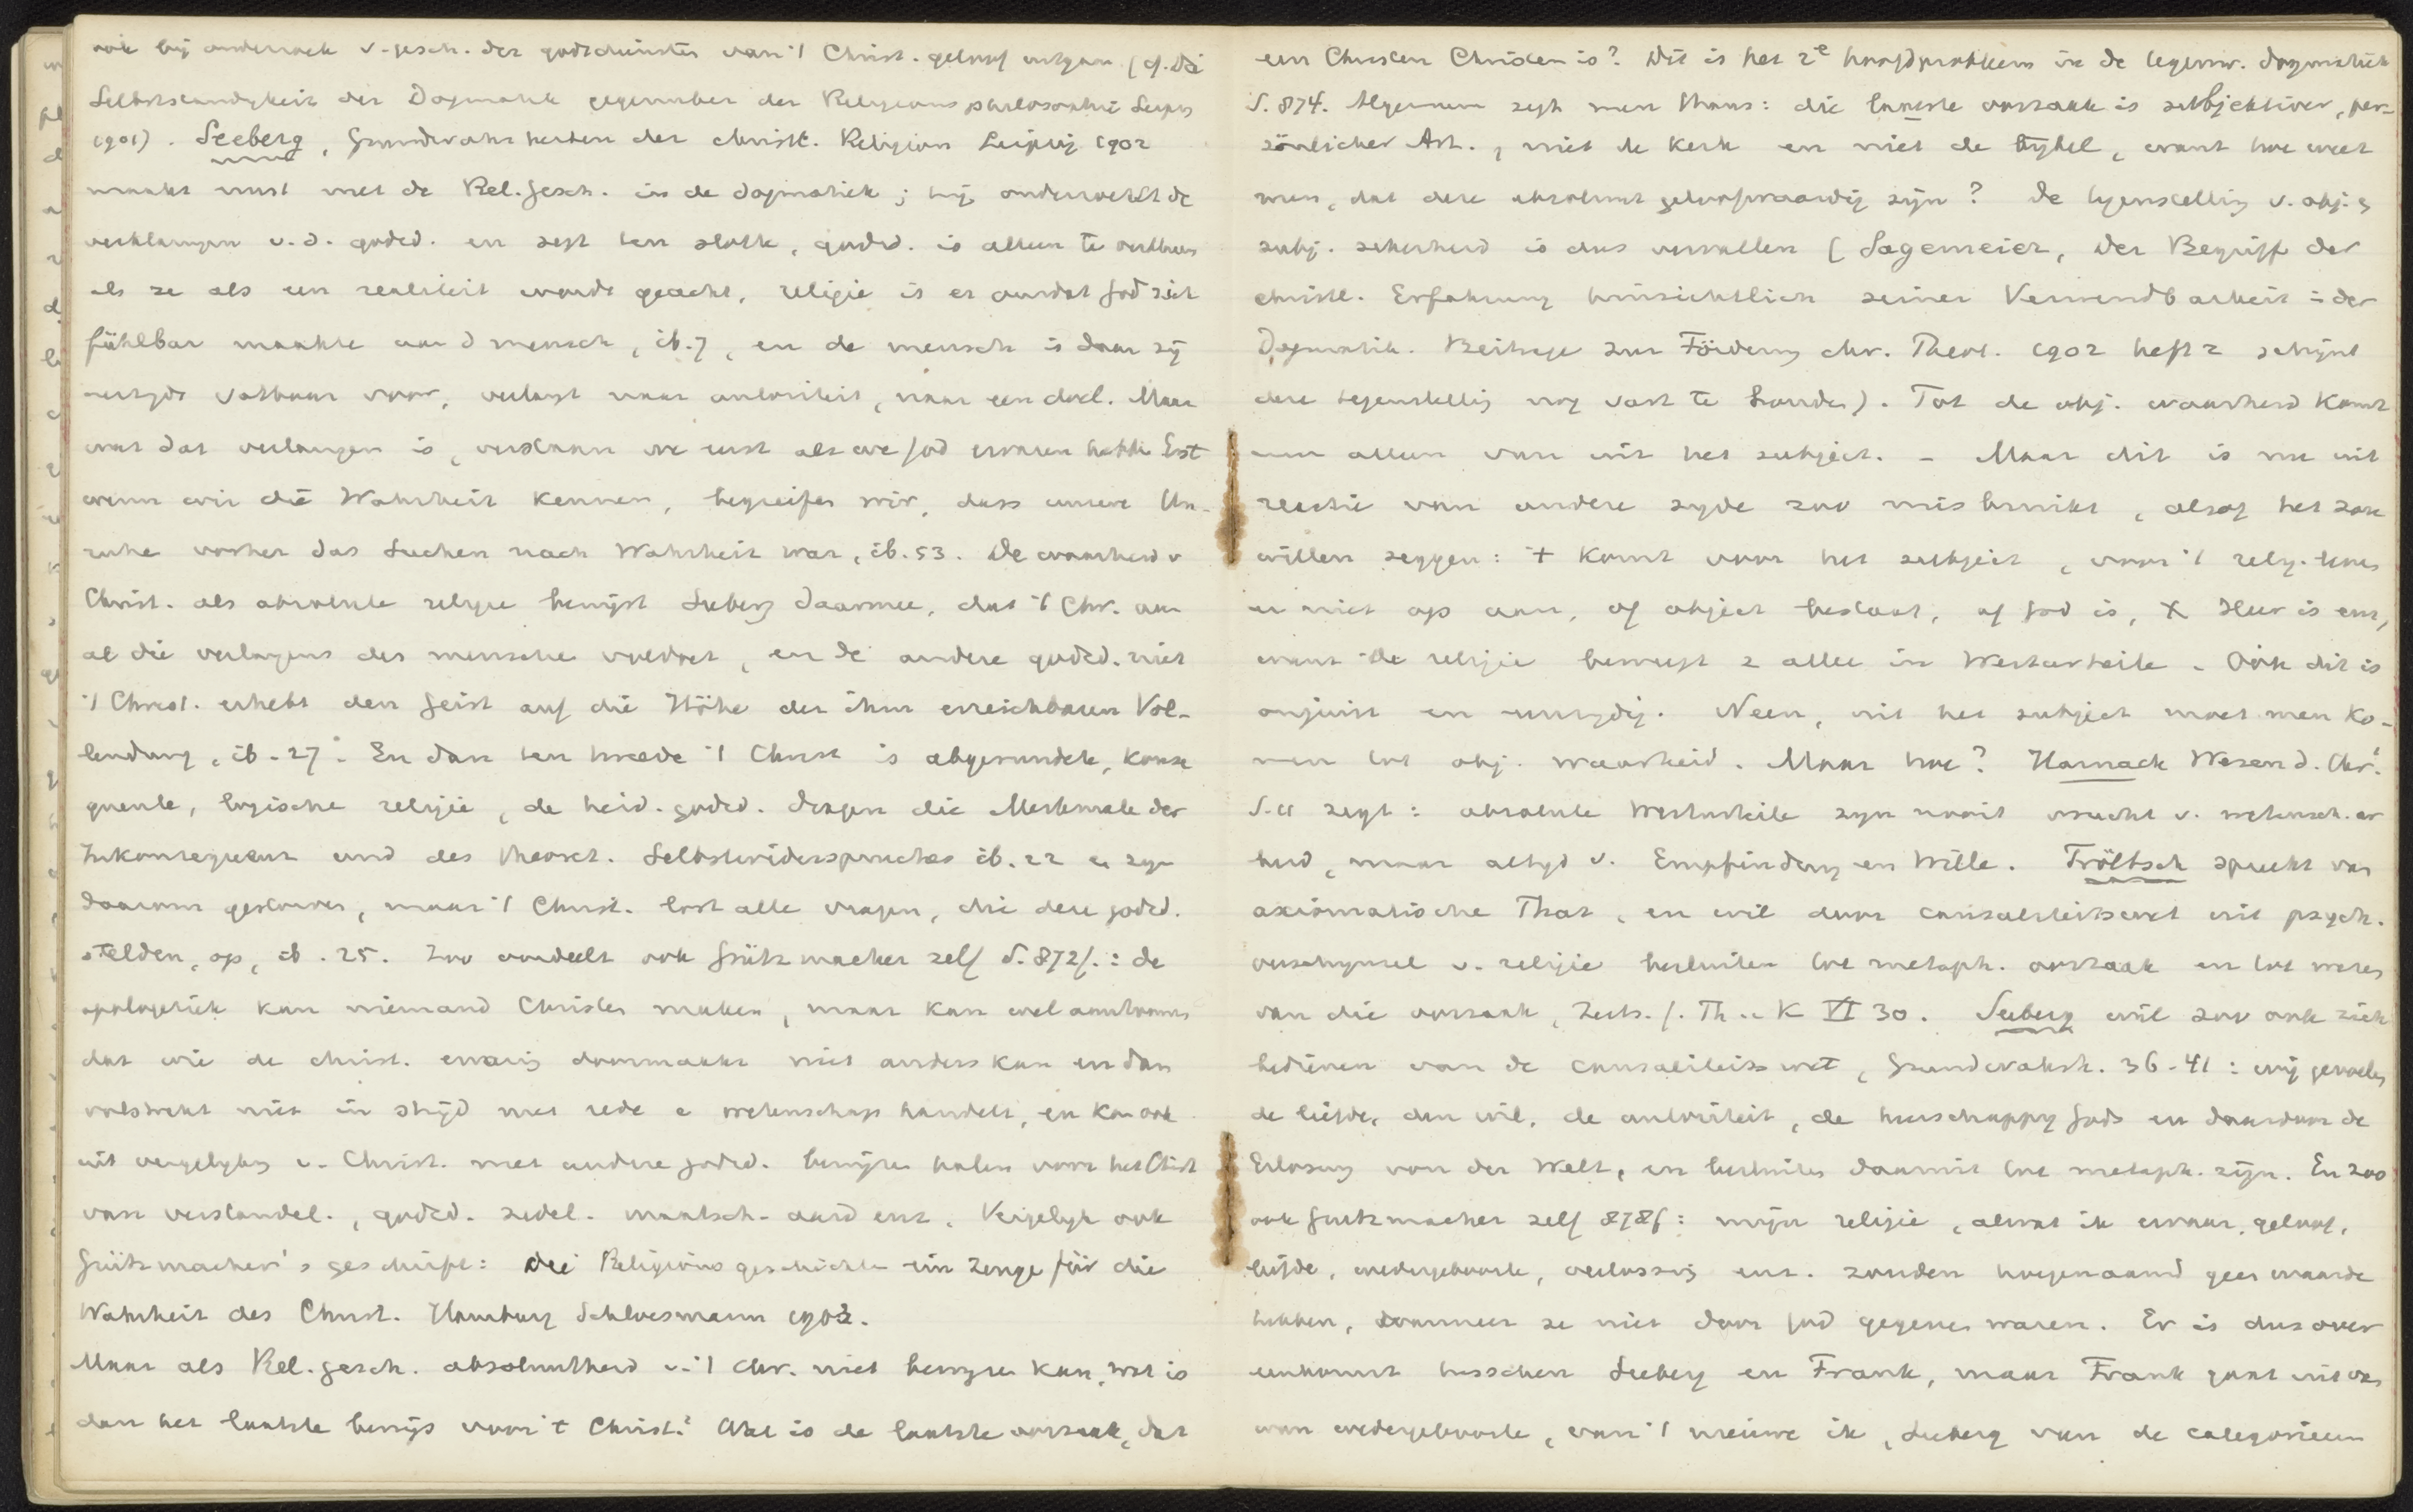 ook bij onderzoek v. gesch. der godsdiensten van 't Christ. geloof uitgaan (cf. Die
Selbstständigkeit der Dogmatik gegenüber der Religionsphilosophie Leipz
1901). Seeberg, Grundwahrheiten der christl. Religion Leipzig 1902
maakt ernst met de Rel.gesch. in de dogmatiek; hij onderzoekt de
verklaringen v. d. godsd. en zegt ten slotte, godsd. is alleen te verklaren
als ze als een realiteit wordt geacht, religie is er omdat God zich
fühlbar maakte aan d mensch, ib. 7, en de mensch is daar zij
vatbaar voor, verlangt naar autoriteit, naar een doel. Maar
wat dat verlangen is, verstaan we eerst als we God ervaren hebben Erst
wenn wir die Wahrheit kennen, begreifen wir, dass unsere Un-
ruhe vorher das Suchen nach Wahrheit war, ib. 53. De waarheid v
Christ. als absolute religie bewijst Seeberg daarmee, dat 't Chr. aan
al die verlangens des menschen voldoet, en de andere godsd. niet
't Christ. erhebt den Geist auf die Höhe der ihm erreichbaren Vol-
lendung, ib. 27. En dan ten tweede 't Christ is abgerundete, konse
quente, logische religie, de heid. godsd. dragen die Merkmale der
Inkonsequenz und des theoret. Selbstwiderspruches ib. 22 en zijn
daarom gestorven, maar 't Christ. lost alle vragen, die deze godsd.
stelden, op, ib. 25. Zoo oordeelt ook Grützmacher zelf S. 872f.: de
apologetiek kan niemand Christen maken, maar kan wel aantoonen
dat wie de christ. ervaring doormaakt niet anders kan en dan
volstrekt niet in strijd met rede e wetenschap handelt, en kan ook
uit vergelijking v. Christ. met andere godsd. bewijzen halen voor het Christ
van verstandel., godsd. zedel. maatsch. aard enz. Vergelijk ook
Grützmacher's geschrift: Die Religionsgeschichte ein Zeuge für die
Wahrheit des Christ. Hamburg Schloessmann 1902.
Maar als Rel.gesch. absoluutheid v. 't Chr. niet bewijzen kan, wat is
dan het laatste bewijs voor 't Christ.? Wat is de laatste oorzaak, dat
een Christen Christen is? Dit is het 2e hoofdprobleem in de tegenw. dogmatiek
S. 874. Algemeen zegt men thans: die laatste oorzaak is subjektiver, per-
sönlicher Art., niet de Kerk en niet de Bijbel, want hoe weet
men, dat deze absoluut geloofwaardig zijn? De tegenstelling v. obj. e
subj. zekerheid is dus vervallen (Lagemeier, Der Begriff der
christl. Erfahrung hinsichtlich seiner Verwendbarkeit i. der
Dogmatik. Beiträge zur Förderung chr. Theol. 1902 heft 2 schijnt
deze tegenstelling nog vast te houden). Tot de obj. waarheid komt
men alleen van uit het subject. - Maar dit is nu uit
reactie van andere zijde zoo misbruikt, alsof het zou
willen zeggen: 't komt voor het subject, voor 't relig. leven
er niet op aan, of object bestaat, of God is, X Heer is enz,
want de religie beweegt z alleen in Werturteile. Ook dit is
onjuist en eenzijdig. Neen, uit het subject moet men ko-
men tot obj. waarheid. Maar hoe? Harnack Wesen d. Chr.
S. 11 zegt: absolute Werturteile zijn nooit vrucht v. wetensch. ar
beid, maar altijd v. Empfindung en Wille. Tröltsch spreekt van
axiomatische That, en wil door causaliteitswet uit psych.
verschijnsel v. religie besluiten tot metaph. oorzaak en tot wezen
van die oorzaak, Zeits. f. Th. u. K VI 30. Seeberg wil zoo ook zich
bedienen van de causaliteitswet, Grundwahrh. 36-41: wij gevoelen
de liefde, den wil, de autoriteit, de heerschappij Gods en daardoor de
Erlösung von der Welt, en besluiten daaruit tot metaph. zijn. En zoo
ook Grützmacher zelf 878f: mijn religie, alwat ik ervaar, geloof,
liefde, wedergeboorte, verlossing enz. zouden hoegenaamd geen waarde
hebben, wanneer ze niet door God gegeven waren. Er is dus over
eenkomst tusschen Seeberg en Frank, maar Frank gaat uit van
van wedergeboorte, van 't nieuwe ik, Seeberg van de categorieen